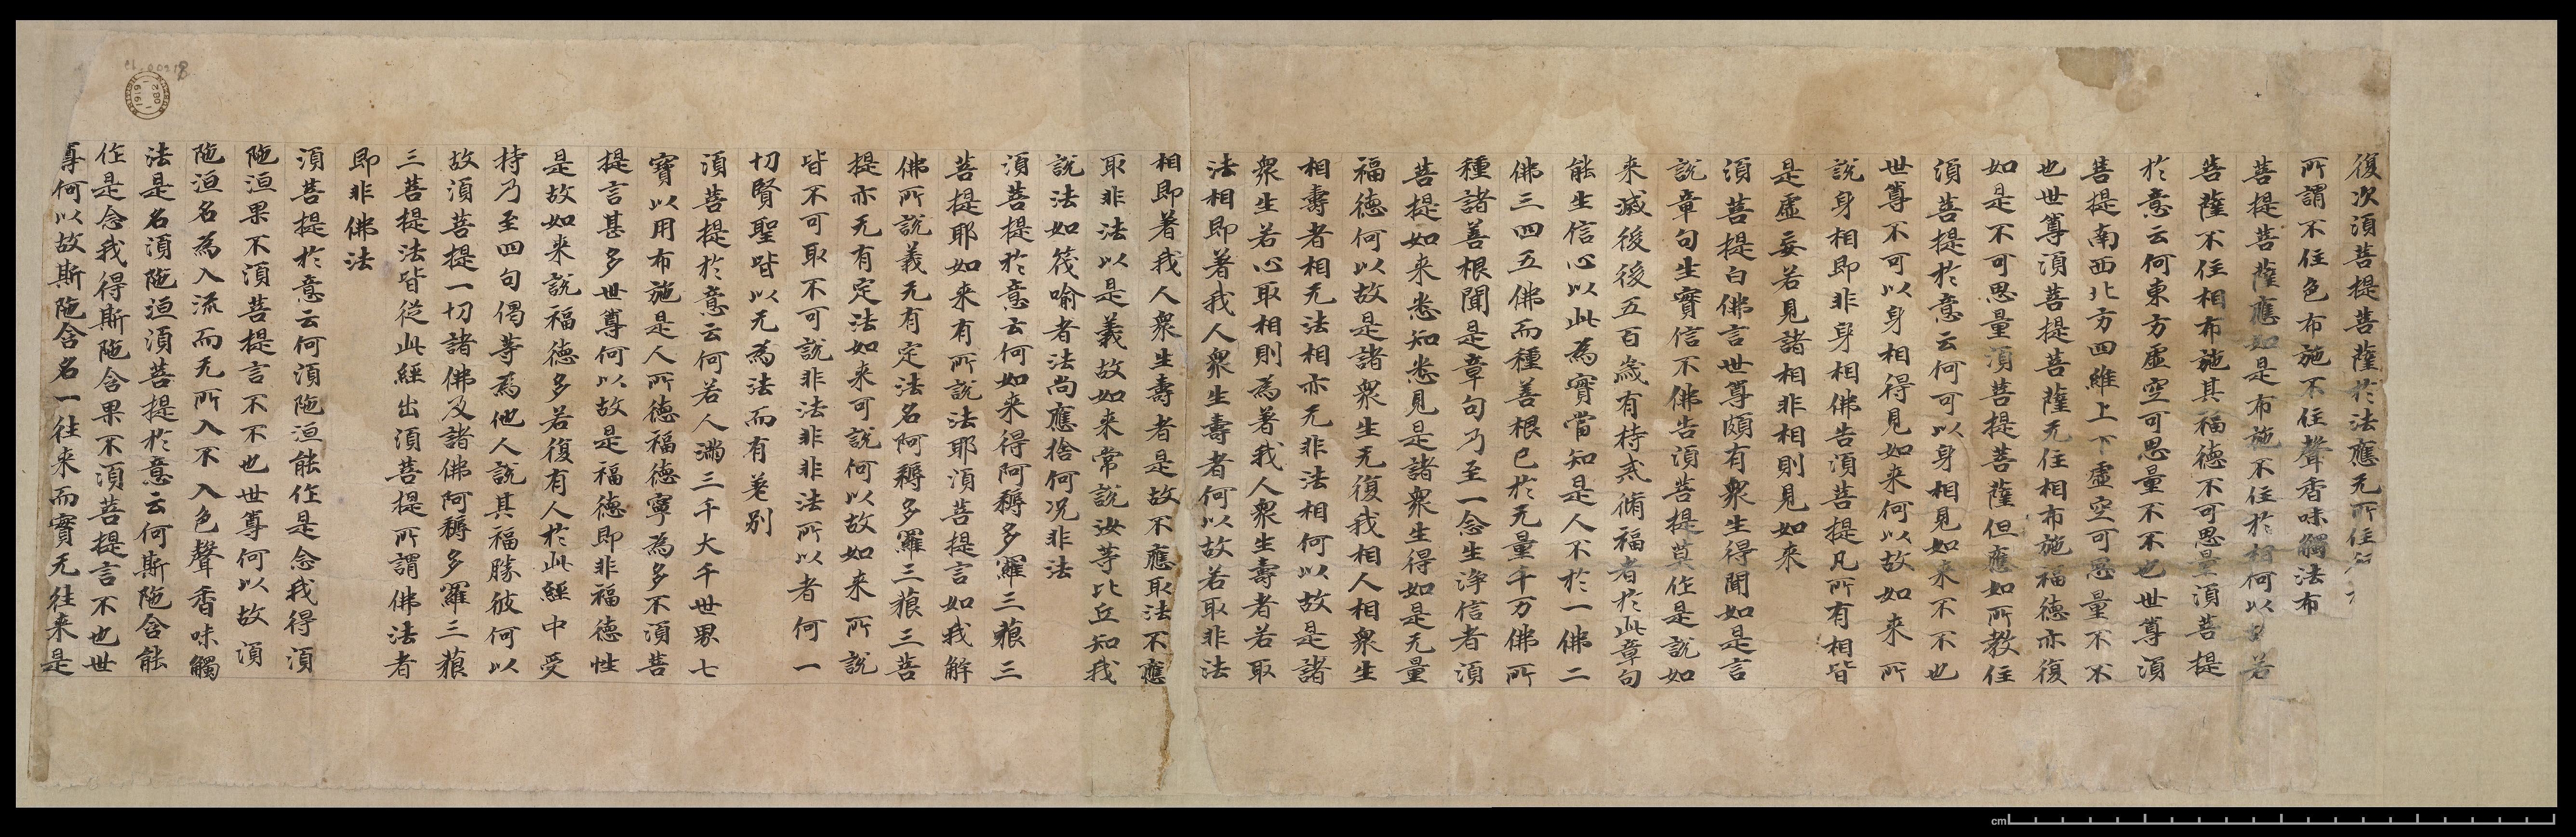 復次須菩提菩薩於法應无所住
所謂不住色布施不住聲香味觸法布
菩提菩薩應如是布施不住於相何以
菩薩不住相布施其福德不可思量須菩提
於意云何東方虛空可思量不不也世尊須
菩提南西北方四維上下虛空可思量不不
也世尊須菩提菩薩无住相布施福德亦復
如是不可思量須菩提菩薩但應如所教住
須菩提於意云何可以身相見如来不不也
世尊不可以身相得見如来何以故如来所
說身相即非身相佛告須菩提凡所有相皆
是虛妄若見諸相非相則見如来
須菩提白佛言世尊頗有衆生得聞如是言
說章句生實信不佛告須菩提莫作是說如
来滅後後五百歲有持戒脩福者於此章句
能生信心以此為實當知是人不於一佛二
佛三四五佛而種善根已於无量千万佛所
種諸善根聞是章句乃至一念生淨信者須
菩提如来悉知悉見是諸衆生得如是无量
福德何以故是諸衆生无復我相人相衆生
相壽者相无法相亦无非法相何以故是諸
衆生若心取相則為著我人衆生壽者若取
法相即著我人衆生壽者何以故若取非法
相即著我人衆生壽者是故不應取法不應
取非法以是義故如来常說汝等比丘知我
說法如筏喻者法尚應捨何况非法
須菩提於意云何如来得阿耨多羅三藐三
菩提耶如来有所說法耶須菩提言如我解
佛所說義无有定法名阿耨多羅三藐三菩
提亦无有定法如来可說何以故如来所說
皆不可取不可說非法非非法所以者何一
切賢聖皆以无為法而有差別
須菩提於意云何若人滿三千大千世界七
寶以用布施是人所德福德寧為多不須菩
提言甚多世尊何以故是福德即非福德性
是故如来說福德多若復有人於此經中受
持乃至四句偈等為他人說其福勝彼何以
故須菩提一切諸佛及諸佛阿耨多羅三藐
三菩提法皆從此經出須菩提所謂佛法者
即非佛法
須菩提於意云何須陁洹能作是念我得須
陁洹果不須菩提言不不也世尊何以故須
陁洹名為入流而无所入不入色聲香味觸
法是名須陁洹須菩提於意云何斯陁含能
作是念我得斯陁含果不須菩提言不也世
尊何以故斯陁含名一往来而實无往来是